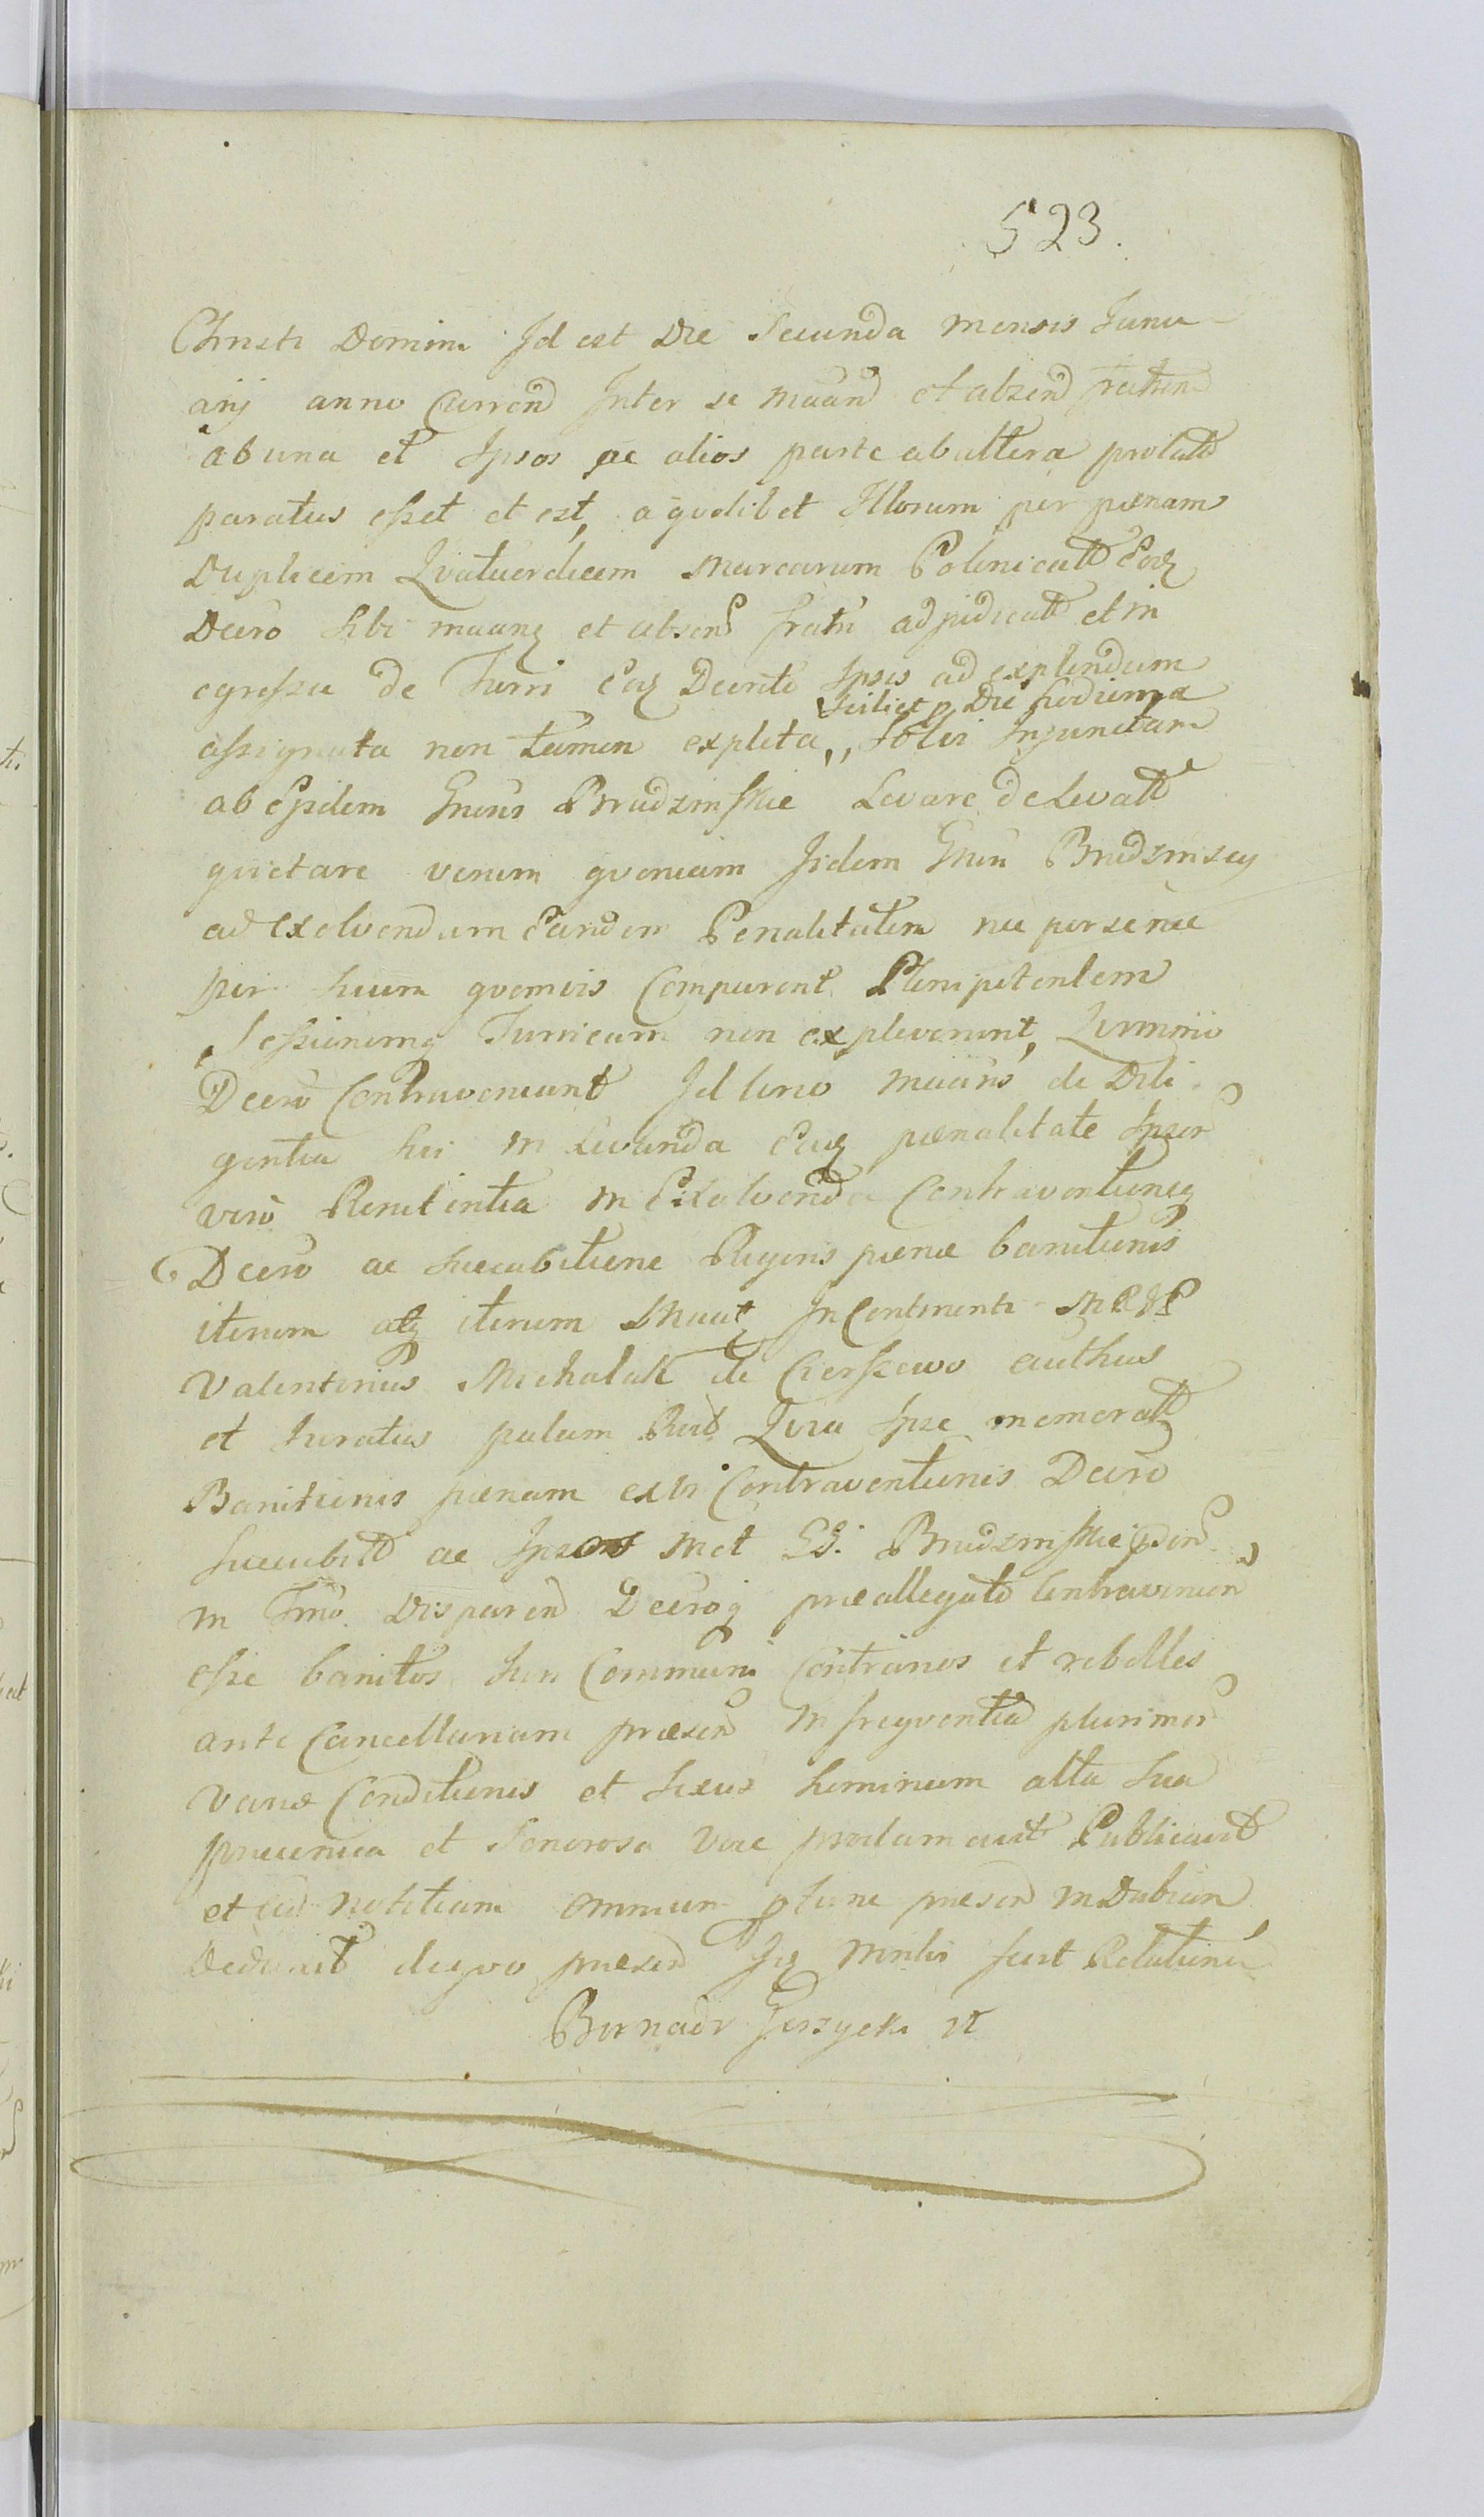 523.
Christi Domini Id est Die Secunda mensis Janu
arij anno Curren Inter se maan et absen fratrem
ab una et Ipsos ac alios parte ab altera prolato
paratus esset et est, a qvolibet Illorum per pænam
Duplicem Qvatuordecem Marcarum Polonicall Eoq
Decro sibi maanq et absens fratri adjudicatt et in
egressu de Turri Eoq Decreto Ipsis ad explendum
scilicet p Die hodierna
assignata non tamen expleta,, solvi Injunctam
ab Ejsdem Gnosis Brudzinskie Levare de Levatt
qvietare verum qvoniam Iidem Gnsi Brudzinscy
ad Exolvendum Eandem Penalitatem nec per se nec
per suum qvemvis Comparent Plenipotentem
Sessionemq Turricam non expleverunt,
Decro Contraveniunt Id circo maans de Dili
gentia sui in Levanda Eaq pænalitate Ipsor
vero Renitentia in Exolvenda Contraventioneq
Decro ac succubitione Rigoris pænæ banitionis
iterum atq iterum In Continenti
Valentinus Michalak de Cierszewo
et Juratus palam Qvia Ipse memoratt
Banitionis pænam exvi Contraventionis Decro
succubitt ac Ipsos met GG. Brudzinskie
in Tmo Disparen Decroq præallegato Contravenien
esse banitos Juri Communi Contrarios et rebelles
ante Cancellariam præsen in freqventia plurimor
variæ Conditionis et sexus hominum alta sua
præconica et Sonorosa voce proclamavit Publicavit
et ad notitiam omnium ptunc præsen indubiam
Deduxit deqvo præsen Relationem